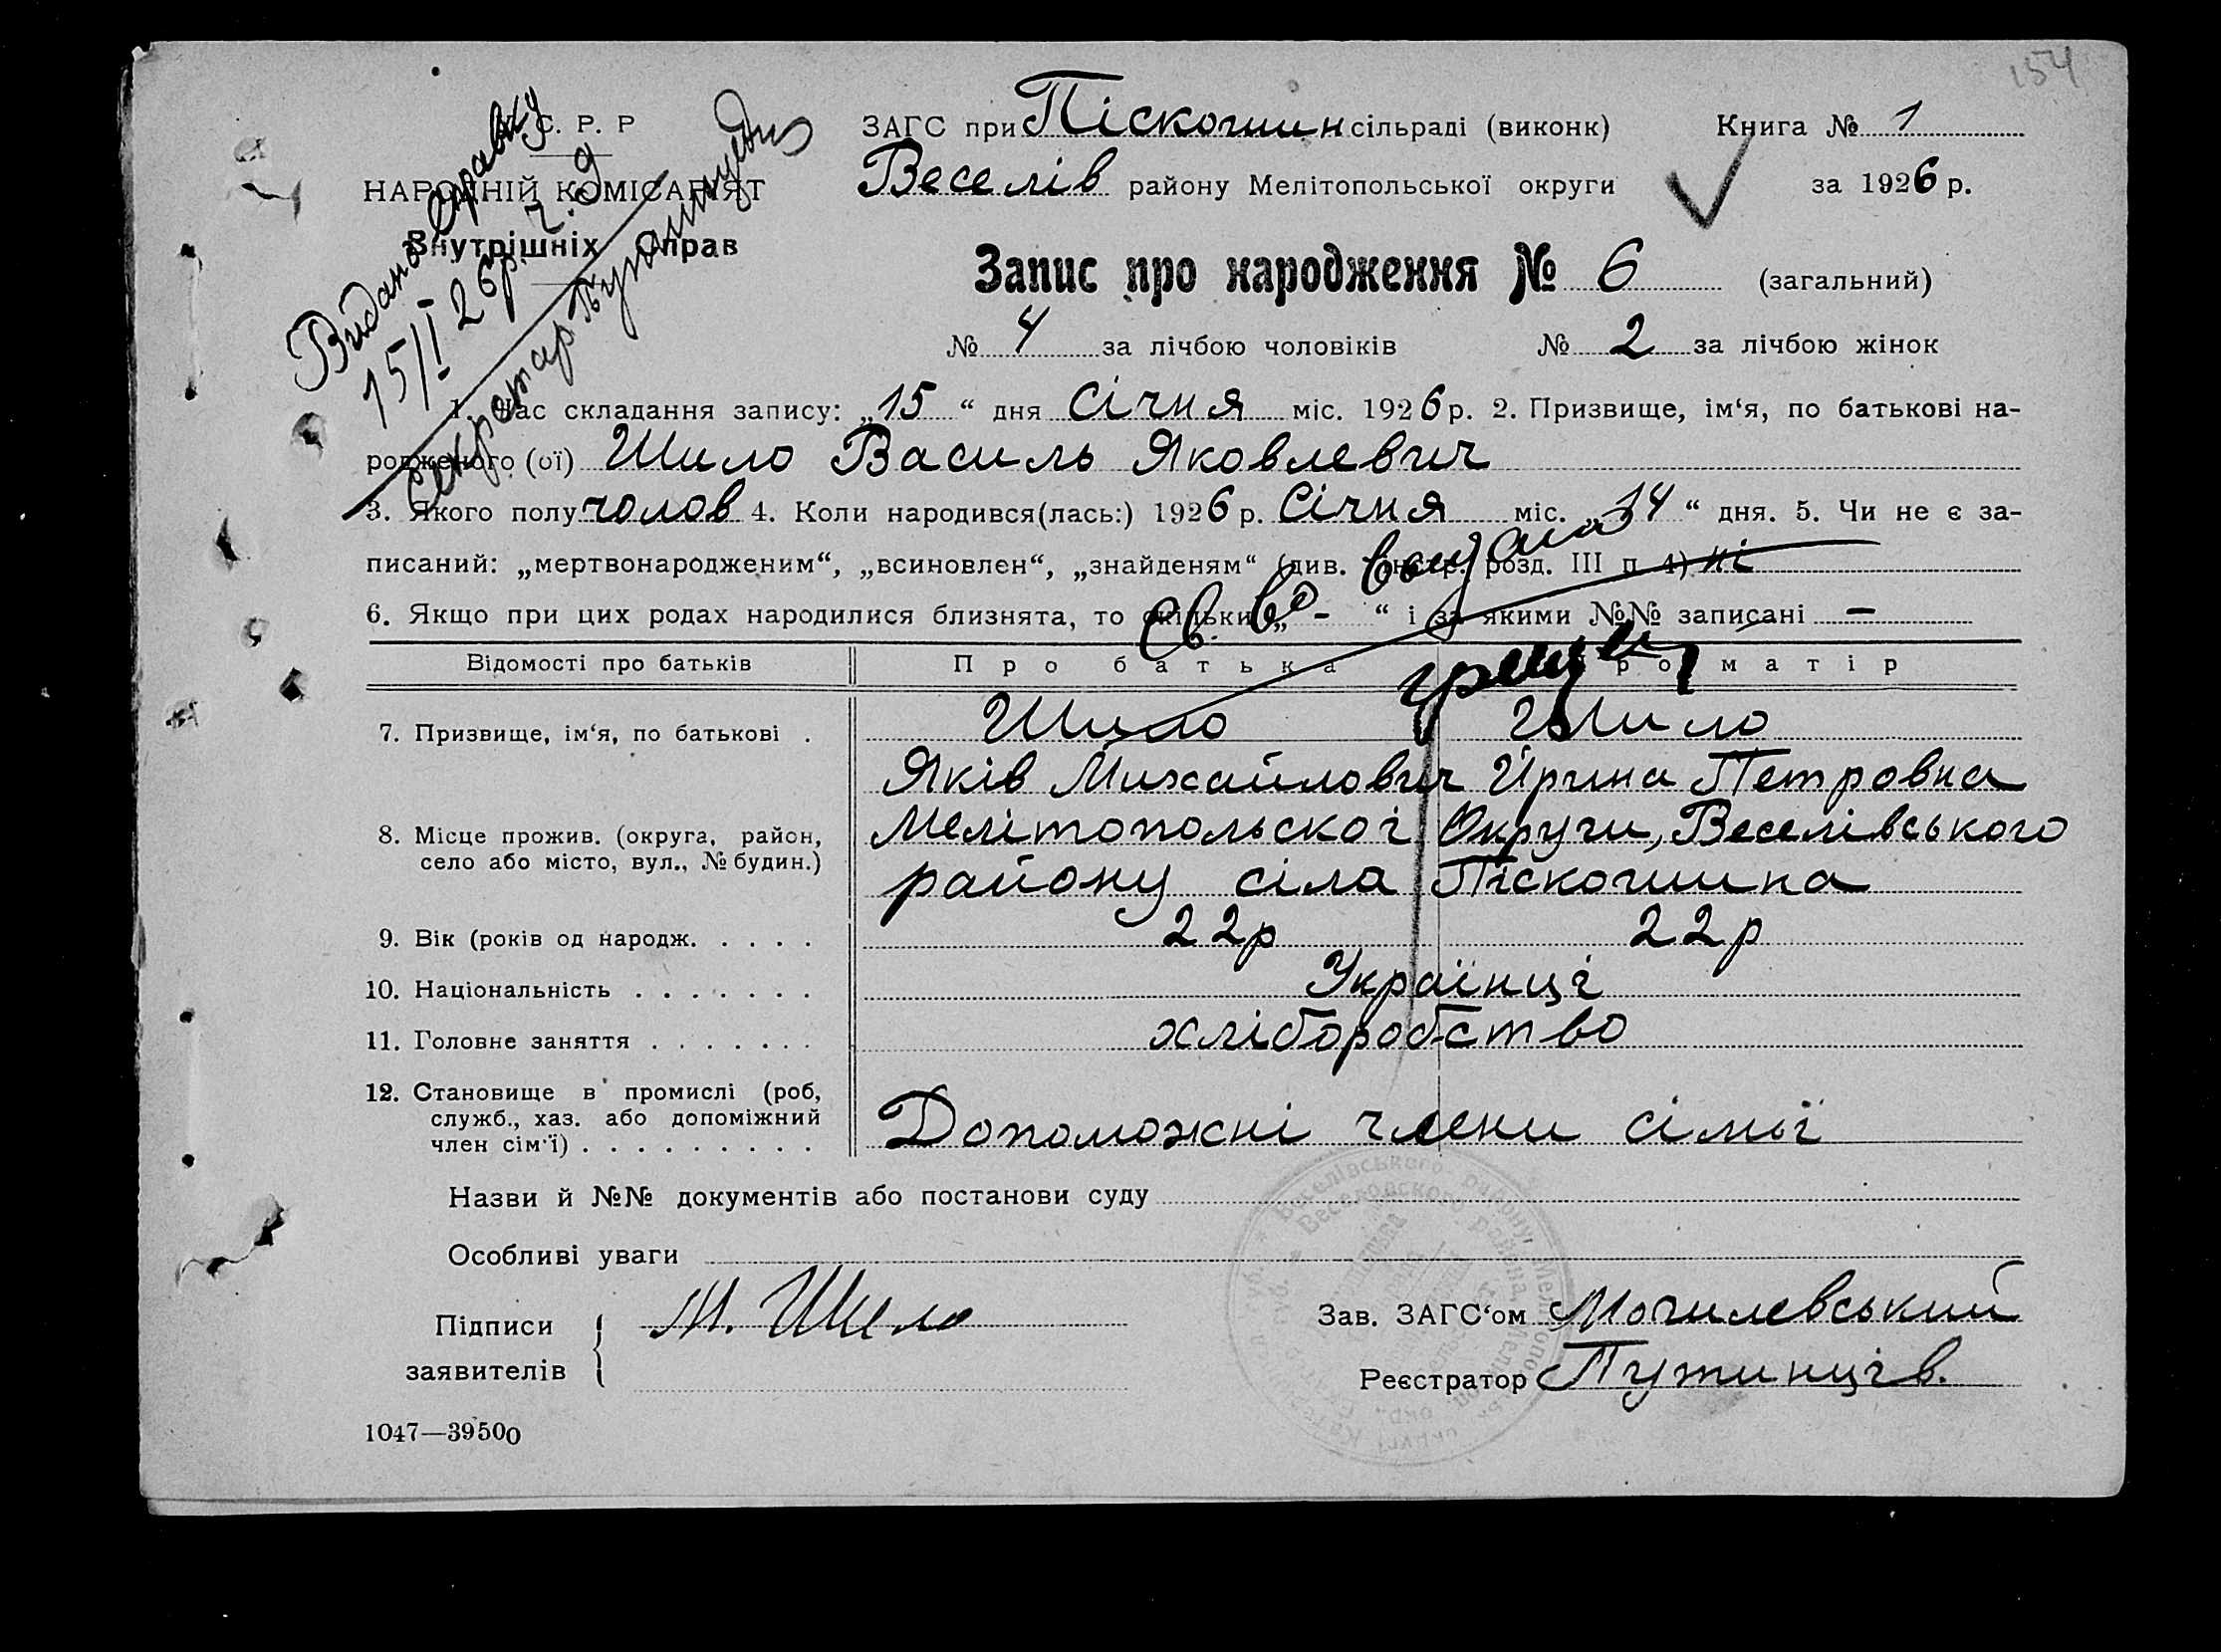 154
У. С. Р. Р
НАРОДНІЙ КОМІСАРІЯТ
Внутрішніх Справ
Видано справку
15/I 26р. ч. 9
Секретар
ЗАГС при Піскошин сільраді (виконк) Книга № 1
Веселів району Мелітопольської округи за 1926 р.
Запис про народження № 6 (загальний)
№ 4 за лічбою чоловіків № 2 за лічбою жінок
1. Час складання запису: „15“ дня Січня міс. 1926 р. 2. Призвище, ім‘я, по батькові на-
родженого (ої) Шило Василь Яковлевич
3. Якого полу чолов 4. Коли народився(лась:) 1926 р. Січня міс. „14“ дня. 5. Чи не є за-
писаний: „мертвонародженим“, „всиновлен“, „знайденям“ (див. інстр. розд. III п 4) ні
6. Якщо при цих родах народилися близнята, то скільки „ - “ і за якими №№ записані —
Св. во видана
Відомості про батьків Про батька Про матір
7. Призвище, ім‘я, по батькові . Шило Шило
Яків Михайлович Ирина Петровна
8. Місце прожив. (округа, район, Мелітопольскоі Округи, Веселівського
село або місто, вул., № будин.) району сіла Піскошина
9. Вік (років од народж. . . . . 22р 22р
10. Національність . . . . . . . Українці
11. Головне заняття . . . . . . . хліборобство
12. Становище в промислі (роб,
служб., хаз. або допоміжний
член сім‘ї) . . . . . . . . . Допоможні члени сімьї
Назви й №№ документів або постанови суду
Особливі уваги
Підписи заявителів { М. Шило
Зав. ЗАГС‘ом Могилевський
Реєстратор Путинців.
1047—39500